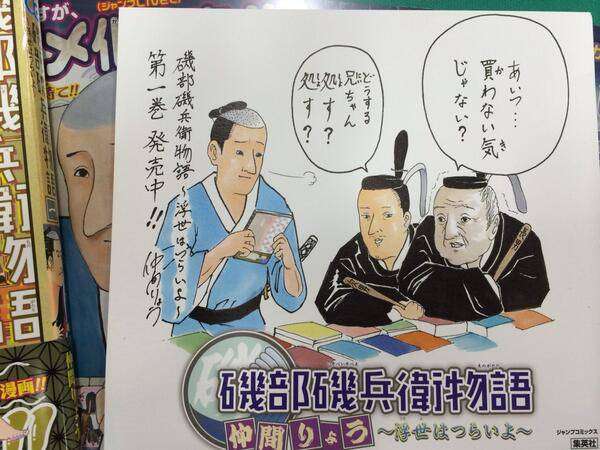 あいつ…
買わない気
じゃない?
どうする
兄ちゃん
処す?
処す?
磯部磯兵衛物語
～浮世はつらいよ～
第一巻 発売中!!
仲間りょう
磯部磯兵衛物語
仲間りょう
～浮世はつらいよ～
ジャンプコミックス
集英社
すが、
漫画!!